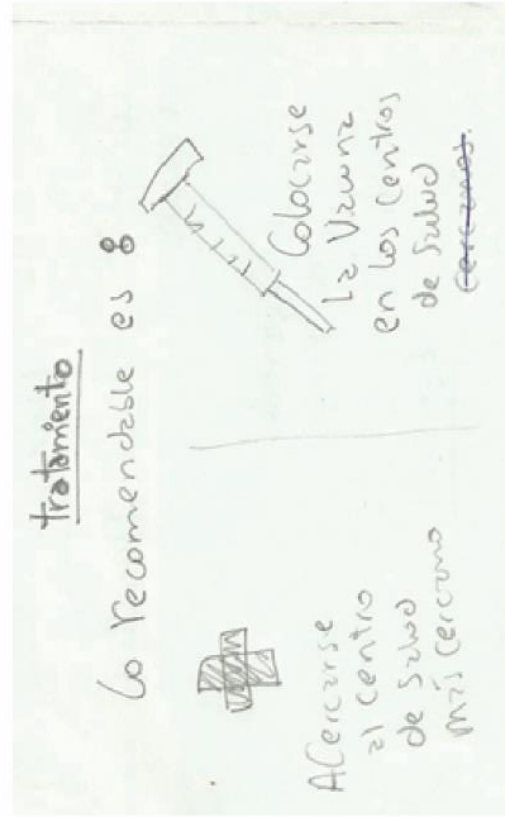 tratamiento
Lo recomendable es :
Acercarse
al centro
de salud
más cercano
Colocarse
la vacuna
en los centros
de salud
cercanos.